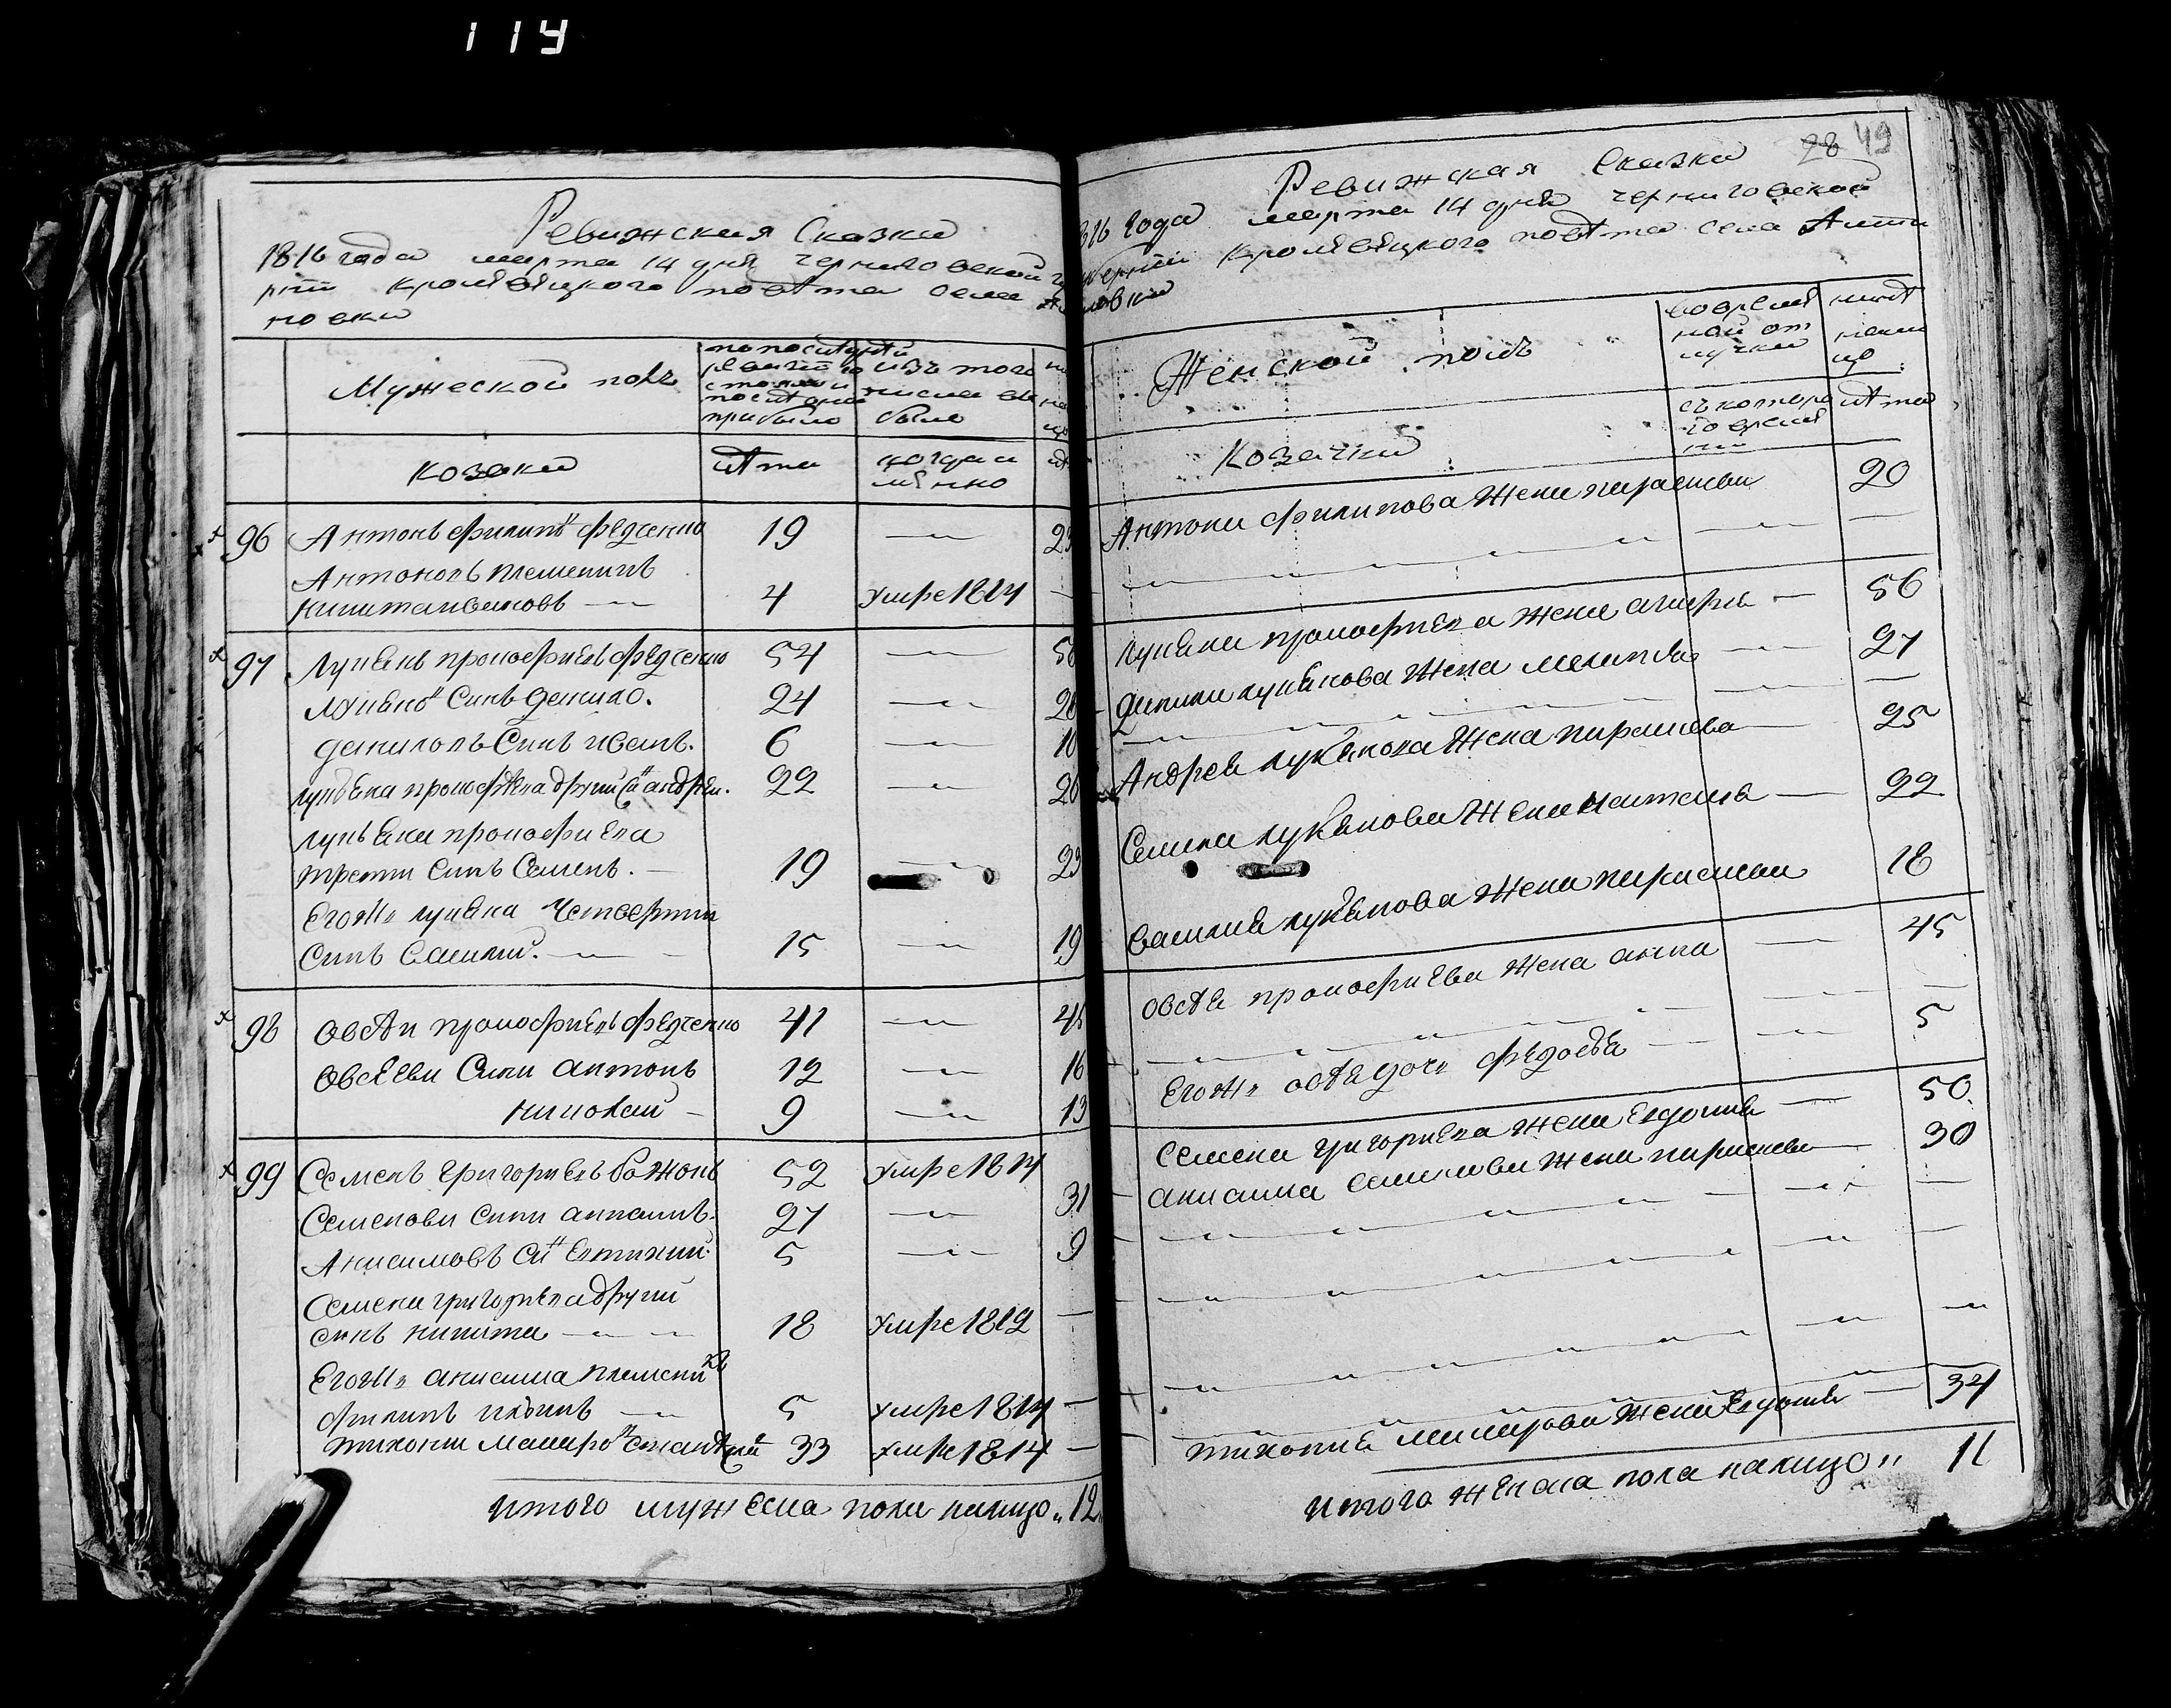 114
Ревижская Сказка
1816 года марта 14 дня черниговской гу
рнии Кролевецкого повѣта села
новки
Мужеской полъ
по последней
ревизіи
состояло и
после оной
прибыло
изъ того
числа вы
было
козаки
лѣта
когда и
менно
96 Антонъ Филипо͞в Федченко 19 23
Антоновъ племеникъ
Никита Ивановъ 4 умре 1814
97 Лукянъ Прокофиевъ Федченко 54 58
Лукяно͞в Синъ Данило. 24 28
Даниловъ Синъ Иванъ. 6 10
Лукьяна Прокофиева други Си͞н Андрей. 22 26
Лукьяна Прокофиева
трети Синъ Семенъ. 19 23
Егожъ Лукяна Четверти
Синъ Василий. 15 19
98 Овсѣи Прокофиевъ Федченко 41 45
Овсеевы Сини Антонъ 12 16
Николай 9 13
99 Семенъ Григориевъ Бажонъ 52 умре 1814
Семеновы сини Анисимъ. 27 31
Анисимовъ Си͞н Евтихий. 5 9
Семена Григориева другий
синъ Никита 18 умре 1812
Егожъ Анисима племеникъ
Филипъ 5 умре 1814
Тихонъ 33 умре 1814
итого мужеска пола налицо 12
28 49
Ревижская Сказка
816 года марта 14 дня черниговской
губернии Кролевецкого повѣта села Алти
новки
Женской полъ
во времен
ной от
лучки
нынѣ
нали
цо
съ которо
го време
ни
лѣта
Козачки
Антона Филипова жена Параскева 20
Лукяна Прокофиева жена Агафия 56
Данила Лукянова жена Меланя 27
Андрея Лукянова жена Параскева 25
Семена Лукянова жена Наталя 22
Василия Лукянова жена Параскева 18
Овсѣя Прокофиева жена Анна 45
Егожъ Овсѣя дочь Федосья 5
Семена Григориева жена Евдокия 50
Анисима Семенова жена Параскева 30
Тихония жена Евдокия 34
итого женска пола налицо 11